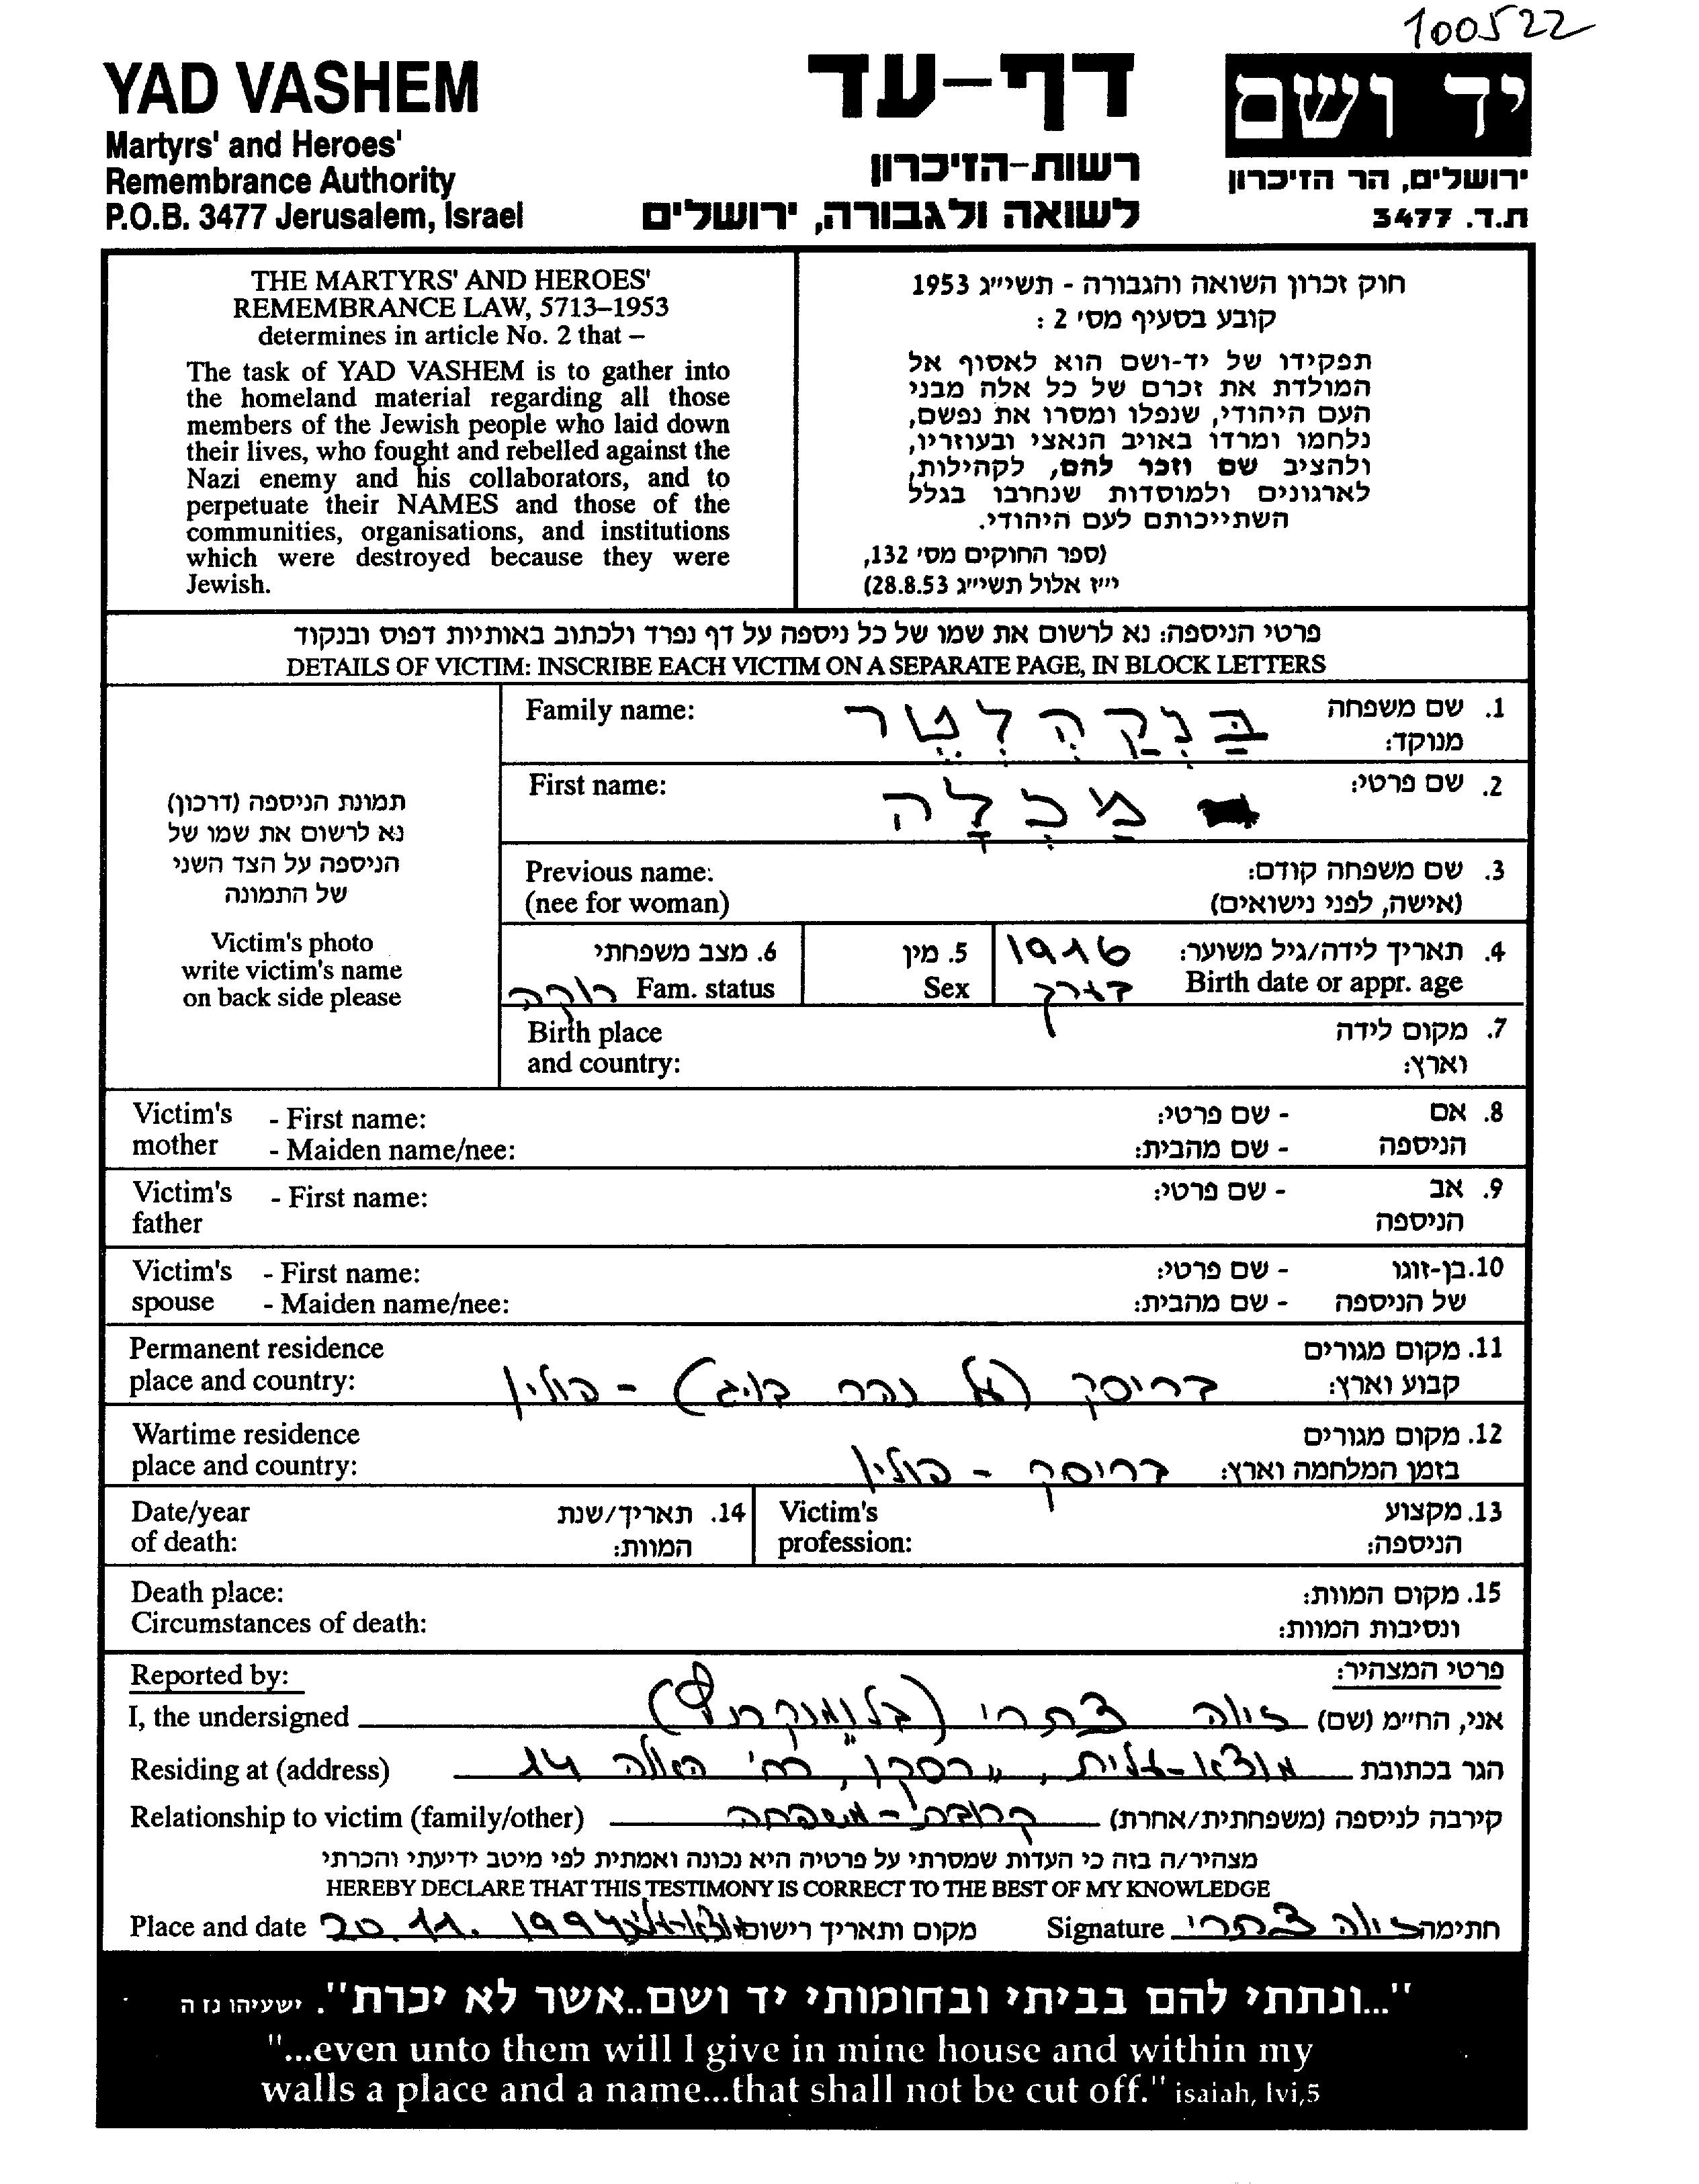 100522
YAD VASHEM
Martyrs' and Heroes'
Remembrance Authority
P.O.B. 3477 Jerusalem, Israel
דף-עד
רשות-הזיכרון
לשואה ולגבורה, ירושלים
יד ושם
ירושלים, הר הזיכרון
ת.ד. 3477
THE MARTYRS' AND HEROES'
REMEMBRANCE LAW, 5713–1953
determines in article No. 2 that –
The task of YAD VASHEM is to gather into
the homeland material regarding all those
members of the Jewish people who laid down
their lives, who fought and rebelled against the
Nazi enemy and his collaborators, and to
perpetuate their NAMES and those of the
communities, organisations, and institutions
which were destroyed because they were
Jewish.
חוק זכרון השואה והגבורה - תשי״ג 1953
קובע בסעיף מס׳ 2 :
תפקידו של יד-ושם הוא לאסוף אל
המולדת את זכרם של כל אלה מבני
העם היהודי, שנפלו ומסרו את נפשם,
נלחמו ומרדו באויב הנאצי ובעוזריו,
ולהציב שם וזכר להם, לקהילות,
לארגונים ולמוסדות שנחרבו בגלל
השתייכותם לעם היהודי.
(ספר החוקים מס׳ 132,
י״ז אלול תשי״ג 28.8.53)
פרטי הניספה: נא לרשום את שמו של כל ניספה על דף נפרד ולכתוב באותיות דפוס ובנקוד
DETAILS OF VICTIM: INSCRIBE EACH VICTIM ON A SEPARATE PAGE, IN BLOCK LETTERS
תמונת הניספה (דרכון)
נא לרשום את שמו של
הניספה על הצד השני
של התמונה
Victim's photo
write victim's name
on back side please
1. שם משפחה בַּנְקַהַלְטֶר Family name:
מנוקד:
2. שם פרטי: מַכְלָה First name:
3. שם משפחה קודם: Previous name:
(אישה, לפני נישואים) (nee for woman)
4. תאריך לידה/גיל משוער: 1916 5. מין 6. מצב משפחתי
Birth date or appr. age בערך Sex Fam. status רווקה
7. מקום לידה Birth place
וארץ: and country:
8. אם - שם פרטי: Victim's - First name:
הניספה - שם מהבית: mother - Maiden name/nee:
9. אב - שם פרטי: Victim's - First name:
הניספה father
10. בן-זוגו - שם פרטי: Victim's - First name:
של הניספה - שם מהבית: spouse - Maiden name/nee:
11. מקום מגורים Permanent residence
קבוע וארץ: בריסק (על נהר בוג) - פולין place and country:
12. מקום מגורים Wartime residence
בזמן המלחמה וארץ: בריסק - פולין place and country:
13. מקצוע Victim's 14. תאריך/שנת Date/year
הניספה: profession: המוות: of death:
15. מקום המוות: Death place:
ונסיבות המוות: Circumstances of death:
פרטי המצהיר: Reported by:
אני, החי״מ (שם) I, the undersigned
הגר בכתובת מוצא-עילית, "רסקו", רח׳ האלה 14 Residing at (address)
קירבה לניספה (משפחתית/אחרת) קרובת-משפחה Relationship to victim (family/other)
מצהיר/ה בזה כי העדות שמסרתי על פרטיה היא נכונה ואמתית לפי מיטב ידיעתי והכרתי
HEREBY DECLARE THAT THIS TESTIMONY IS CORRECT TO THE BEST OF MY KNOWLEDGE
חתימה Signature מקום ותאריך רישום 20.11.1999 Place and date
"...ונתתי להם בביתי ובחומותי יד ושם..אשר לא יכרת". ישעיהו נז ה
"...even unto them will I give in mine house and within my
walls a place and a name...that shall not be cut off." isaiah, lvi,5